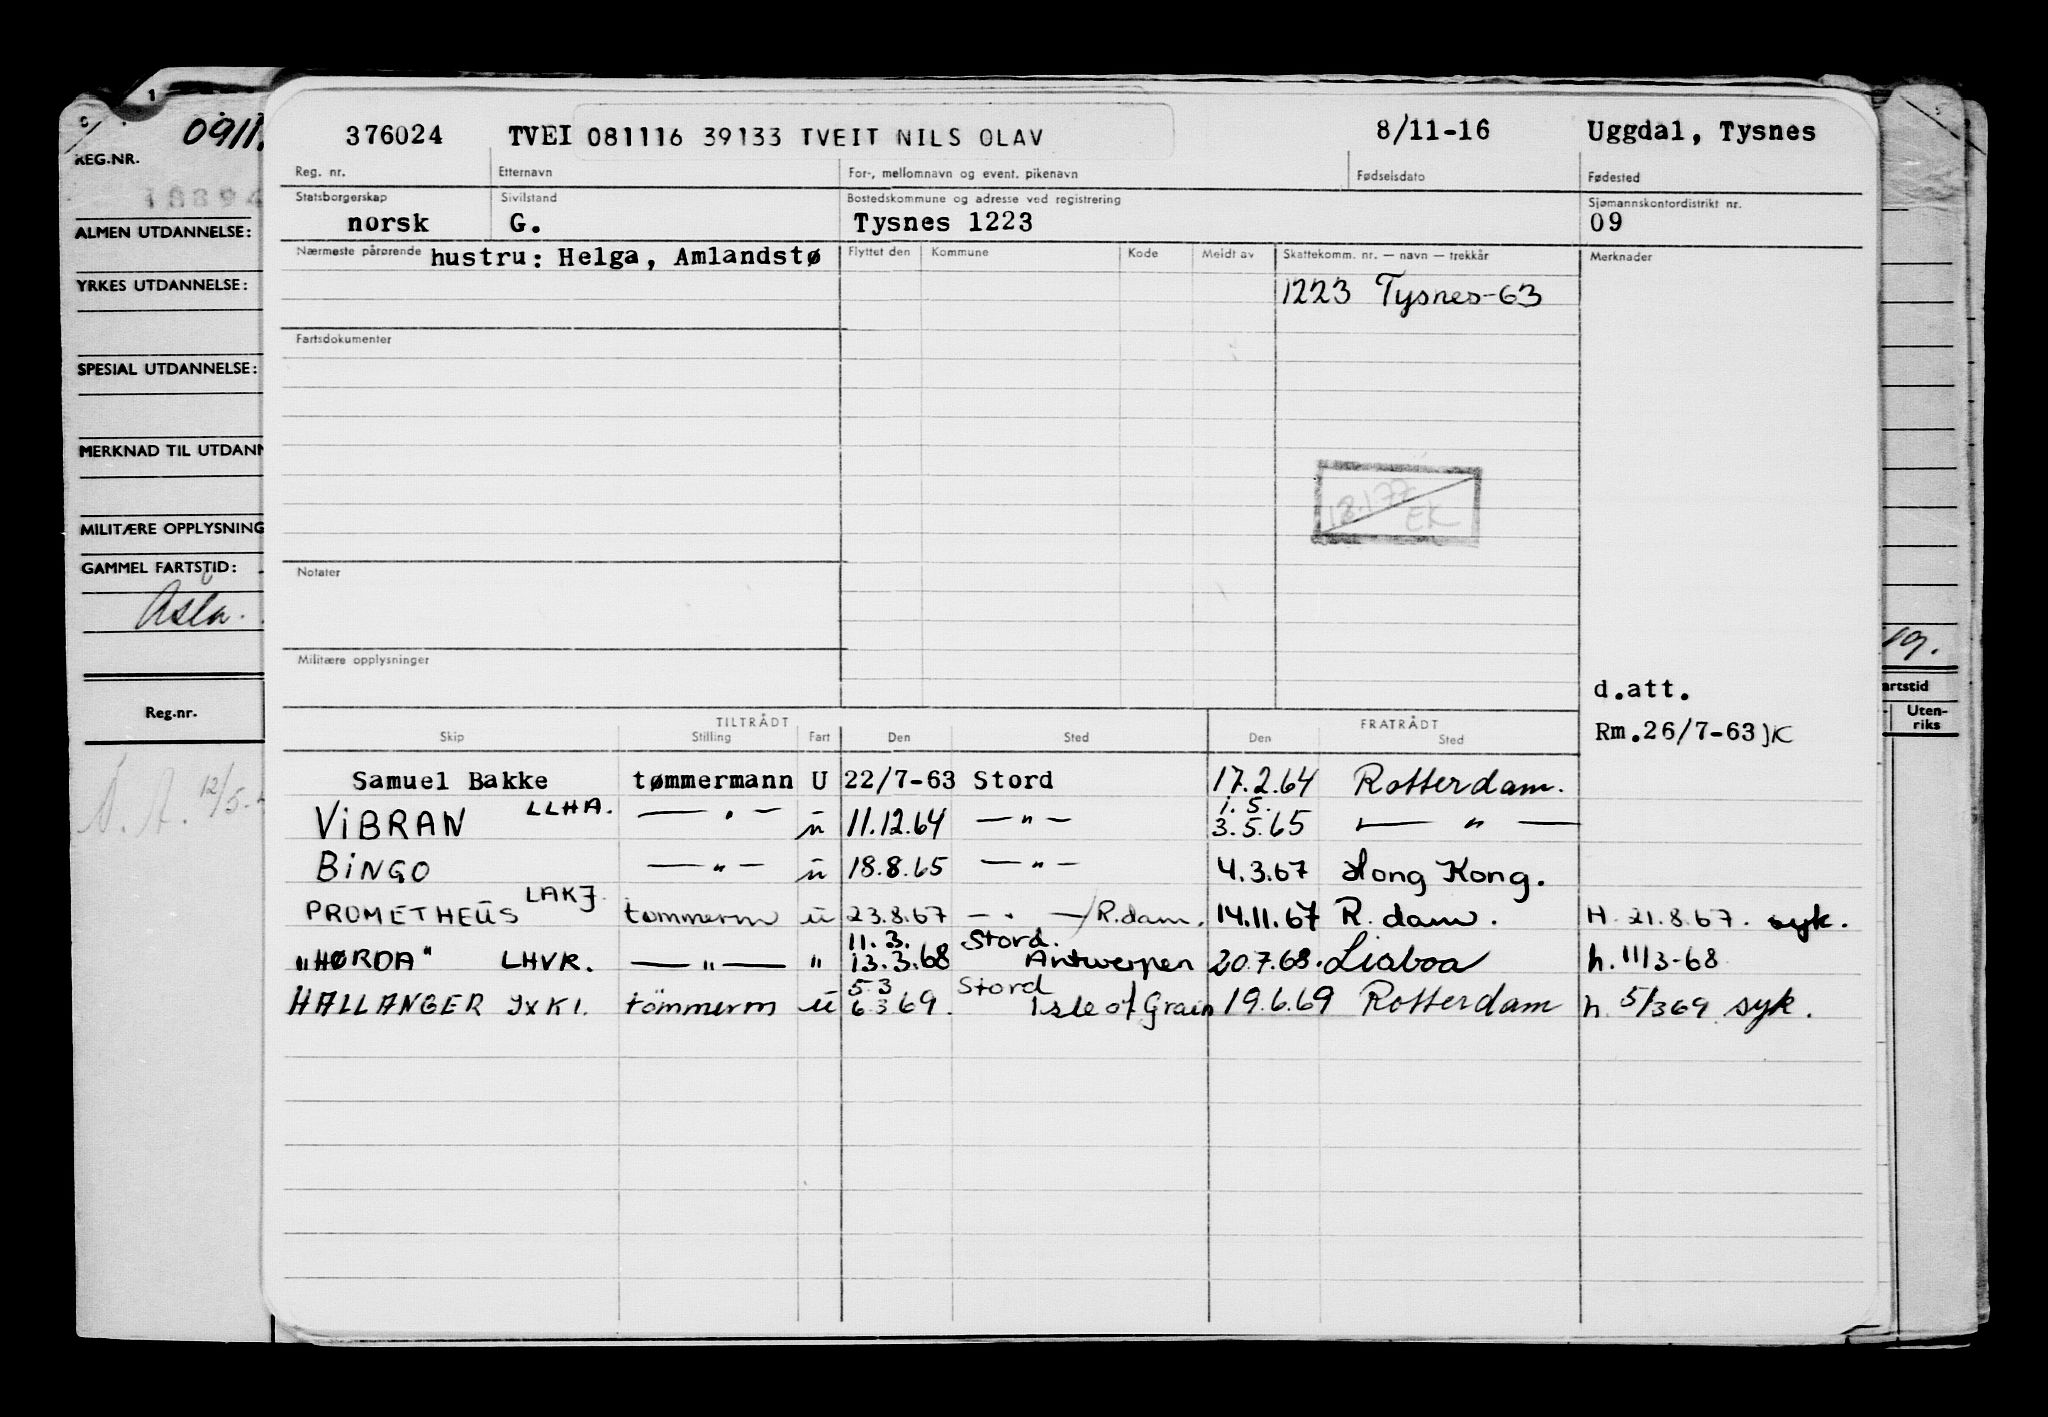 1
0911.
REG.NR.
18894
ALMEN UTDANNELSE:
YRKES UTDANNELSE:
SPESIAL UTDANNELSE:
MERKNAD TIL UTDANN
MILITÆRE OPPLYSNING
GAMMEL FARTSTID:
Reg.nr.
12/5
376024 TVEI 081116 39133 TVEIT NILS OLAV 8/11-16 Uggdal, Tysnes
Reg. nr. Etternavn For-, mellomnavn og event. pikenavn Fødselsdato Fødested
Statsborgerskap Sivilstand Bostedskommune og adresse ved registrering Sjømannskontordistrikt nr.
norsk G. Tysnes 1223 09
Nærmeste pårørende hustru: Helga, Amlandstø Flyttet den Kommune Kode Meldt av Skattekomm. nr. — navn — trekkår Merknader
1223 Tysnes-63
Fartsdokumenter
18.1.77
EK
Notater
Militære opplysninger
d.att.
Rm.26/7-63 JK
TILTRÅDT FRATRÅDT
Skip Stilling Fart Den Sted Den Sted
Samuel Bakke tømmermann U 22/7-63 Stord 17.2.64 Rotterdam.
1.5.
VIBRAN LLHA. — " — ū 11.12.64 — " — 3.5.65 — " —
BINGO — " — ū 18.8.65 — " — 4.3.67 Hong Kong.
PROMETHEUS LAKJ. tømmerm ū 23.8.67 — " — / R.dam. 14.11.67 R.dam. H. 21.8.67. syk.
11.3. Stord.
"HØRDA" LHVR. — " — " 13.3.68 Antwerpen 20.7.68. Lisboa h. 11/3-68
5.3 Stord
HALLANGER JXKI. tömmerm ū 6.3.69. Isle of Grain 19.6.69 Rotterdam h. 5/369 syk.
19.
artstid
Uten-
riks